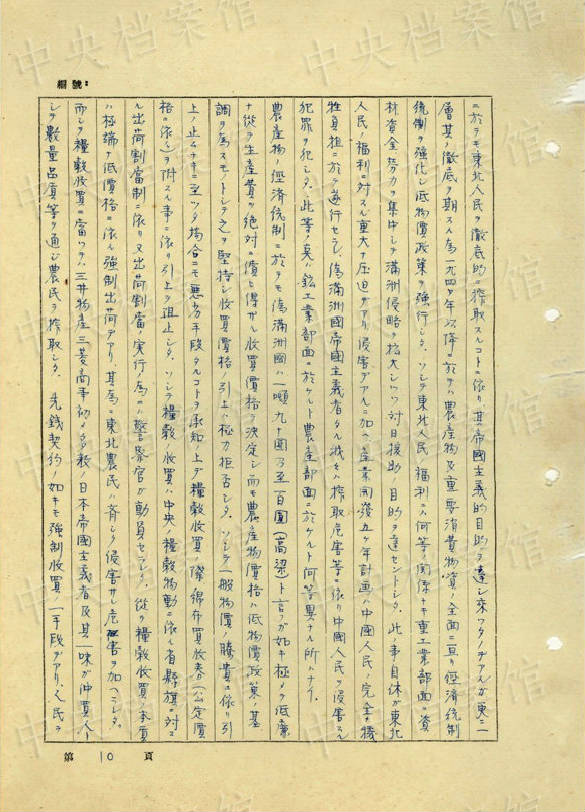 編號：
ニ於テモ東北人民ヲ徹底的ニ搾取スルコトニ依リ其帝國主義的目的ヲ達シ來ツタノデアスガ更ニ一
層其ノ徹底ヲ期スル為一九四〇年以降ニ於テハ農産物及重要消費物資ノ全面ニ亘リ経済統制
統制ヲ強化シ低物價政策ヲ強行シタ。ソシテ東北人民ノ福利トハ何等ノ関係ナキ重工業部面ニ資
材資金勞力ヲ集中シテ滿洲侵略ヲ拡大シツツ対日援助ノ目的ヲ達セントシタ。此ノ事自体が東北
人民ノ福利ニ対スル重大ナ圧迫デアリ侵害デアルニ加ヘ産業開発五ヶ年計画ハ中國人民ノ完全ナ犠
牲負担ニ於テ遂行セラレ偽滿洲國帝國主義者タル我々ハ搾取危害等ニ依リ中國人民ヲ侵害スル
犯罪ヲ犯シタ。此等ノ矣ハ鉱工業部面ニ於ケルト農産部面ニ於ケルト何等異ナル所ハナイ。
農産物ノ経済統制ニ於テモ偽滿洲國ハ一噸九十圓乃至百圓(高梁)ト言フガ如キ極メテ低廉
ナ従テ生産費ヲ絶対ニ償ヒ得ザル收買價格ヲ決定シ而モ農産物價格ハ低物價政策ノ基
調ヲ為スモノトシテ之ヲ堅持シ收買價格ノ引上ヲ極力拒否シタ。ソシテ一般物價ノ騰貴ニ依リ引
上ノ止ムナキニ至ツタ場合ニモ悪劣手段タルコトヲ承知ノ上デ糧穀收買ノ際綿布買收券(公定價
格ニ依ル)ヲ附スル事ニ依リ引上ヲ阻止シタ。ソシテ糧穀ノ收買ハ中央ノ糧穀物動ニ依ル省縣旗ニ対ス
ル出荷割當制ニ依リ又出荷割當ノ実行ノ為ニハ警察官が動員セラレタ。従テ糧穀收買ノ本質
ハ極端ナ低價格ニ依ル強制出荷デアリ、其為ニ東北農民ハ斉シク侵害サレ危害ヲ加ヘラレタ。
而シテ糧穀收買ニ當ツテハ三井物産三菱商事初メ多数ノ日本帝國主義者及其ノ一味が仲買人ト
シテ數量品質等ヲ通シ農民ヲ搾取シタ。先銭契約ノ如キモ強制收買ノ一手段デアリ、人民ヲ
第 10 頁
中央档案馆